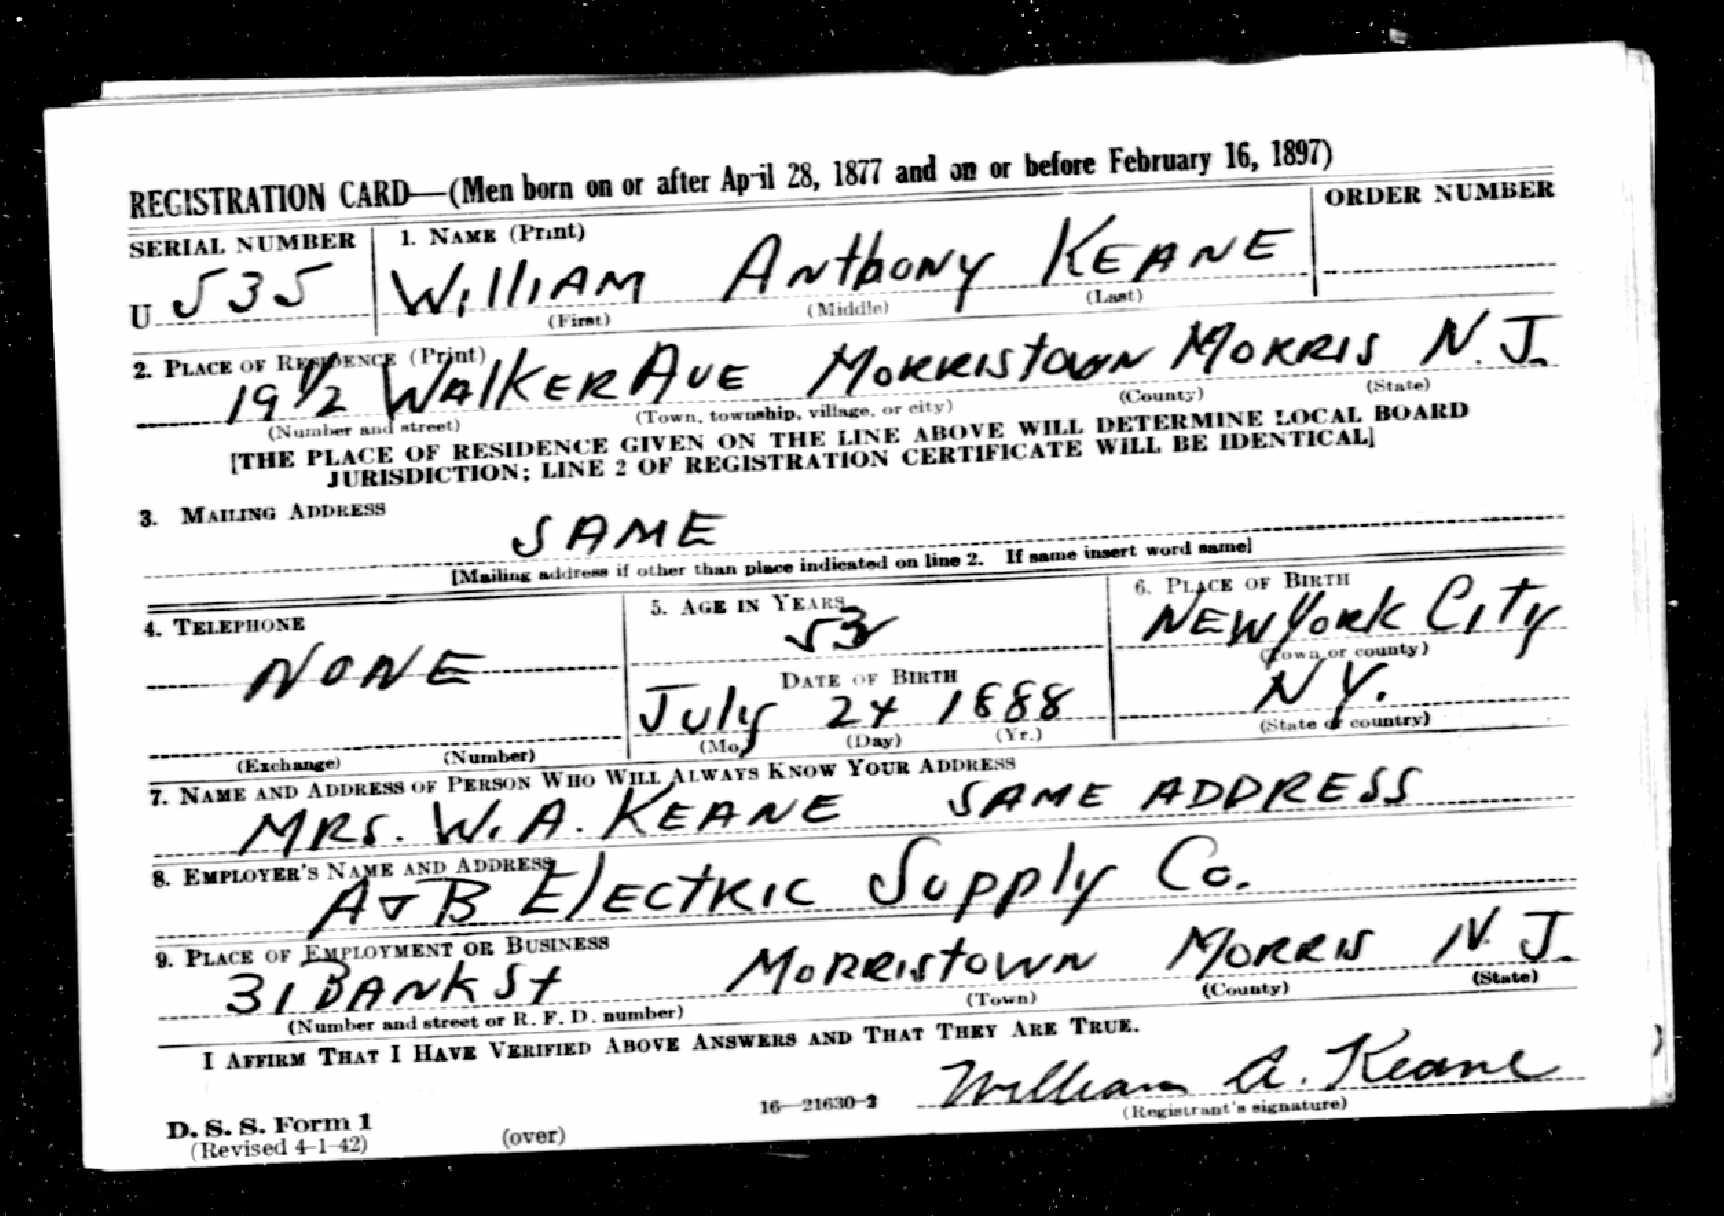 REGISTRATION CARD—(Men born on or after April 28, 1877 and on or before February 16, 1897)
SERIAL NUMBER 1. NAME (Print) ORDER NUMBER
U 535 WILLIAM ANTHONY KEANE
(First) (Middle) (Last)
2. PLACE OF RESIDENCE (Print)
19 1/2 WALKER AVE MORRISTOWN MORRIS N.J.
(Number and street) (Town, township, village, or city) (County) (State)
[THE PLACE OF RESIDENCE GIVEN ON THE LINE ABOVE WILL DETERMINE LOCAL BOARD
JURISDICTION; LINE 2 OF REGISTRATION CERTIFICATE WILL BE IDENTICAL]
3. MAILING ADDRESS
SAME
[Mailing address if other than place indicated on line 2. If same insert word same]
4. TELEPHONE 5. AGE IN YEARS 6. PLACE OF BIRTH
NONE 53 NEW YORK CITY
(Town or county)
DATE OF BIRTH
July 24 1888 N Y.
(Exchange) (Number) (Mo.) (Day) (Yr.) (State or country)
7. NAME AND ADDRESS OF PERSON WHO WILL ALWAYS KNOW YOUR ADDRESS
MRS. W. A. KEANE SAME ADDRESS
8. EMPLOYER'S NAME AND ADDRESS
A & B ELECTRIC SUPPLY CO.
9. PLACE OF EMPLOYMENT OR BUSINESS
31 BANK ST MORRISTOWN MORRIS N. J.
(Number and street or R. F. D. number) (Town) (County) (State)
I AFFIRM THAT I HAVE VERIFIED ABOVE ANSWERS AND THAT THEY ARE TRUE.
William A. Keane
D. S. S. Form 1 16—21630-2 (Registrant's signature)
(Revised 4-1-42) (over)